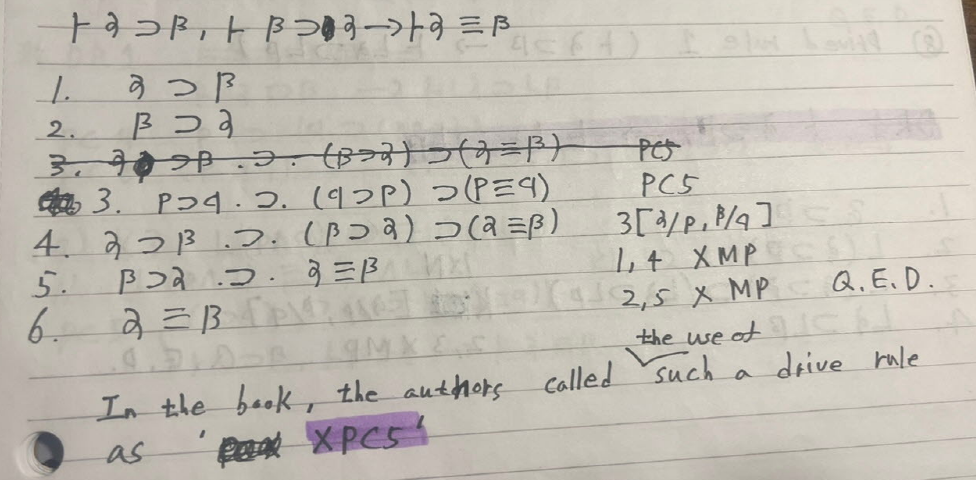 ⊢ α ⊃ β, ⊢ β ⊃ α → ⊢ α ≡ β
1. α ⊃ β
2. β ⊃ α
3. α ⊃ β . ⊃ . (β ⊃ α) ⊃ (α ≡ β) PC5
3. p ⊃ q . ⊃ . (q ⊃ p) ⊃ (p ≡ q) PC5
4. α ⊃ β . ⊃ . (β ⊃ α) ⊃ (α ≡ β) 3[α/p, β/q]
5. β ⊃ α . ⊃ . α ≡ β 1, 4 × MP
6. α ≡ β 2, 5 × MP Q.E.D.
In the book, the authors called the use of such a drive rule
as ' XPC5'